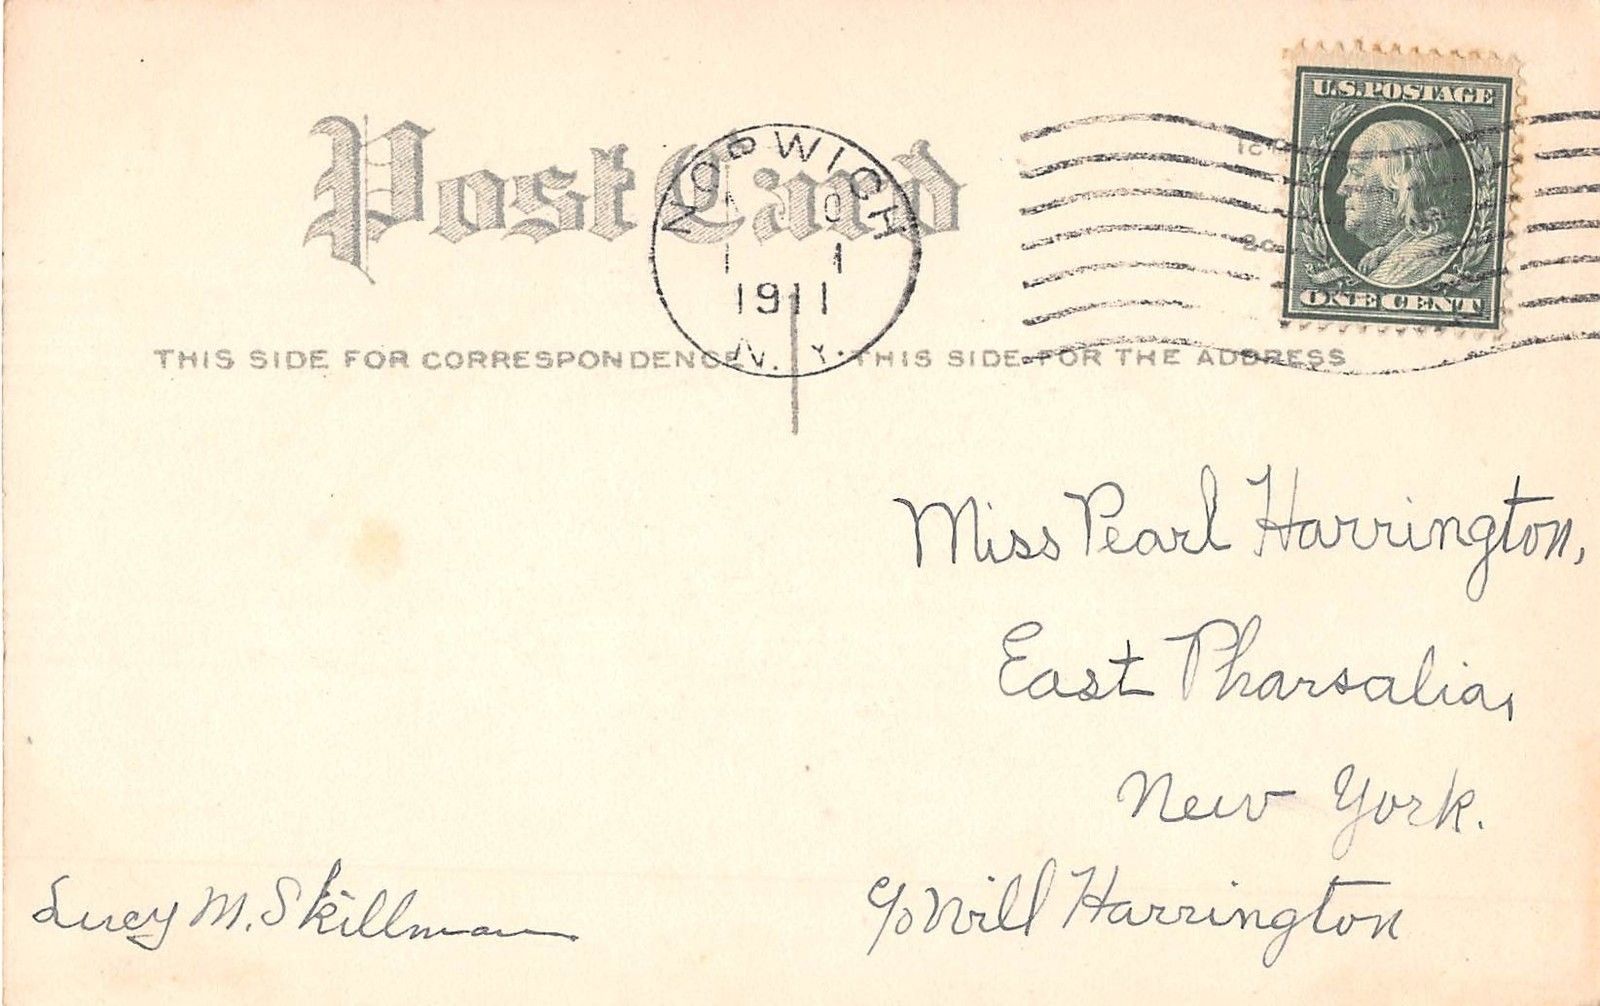 Post Card
NORWICH
1911
N. Y.
U.S. POSTAGE
ONE CENT
THIS SIDE FOR CORRESPONDENCE
THIS SIDE FOR THE ADDRESS
Miss Pearl Harrington,
East Pharsalia,
New York.
c/o Will Harrington
Lucy M. Skillman